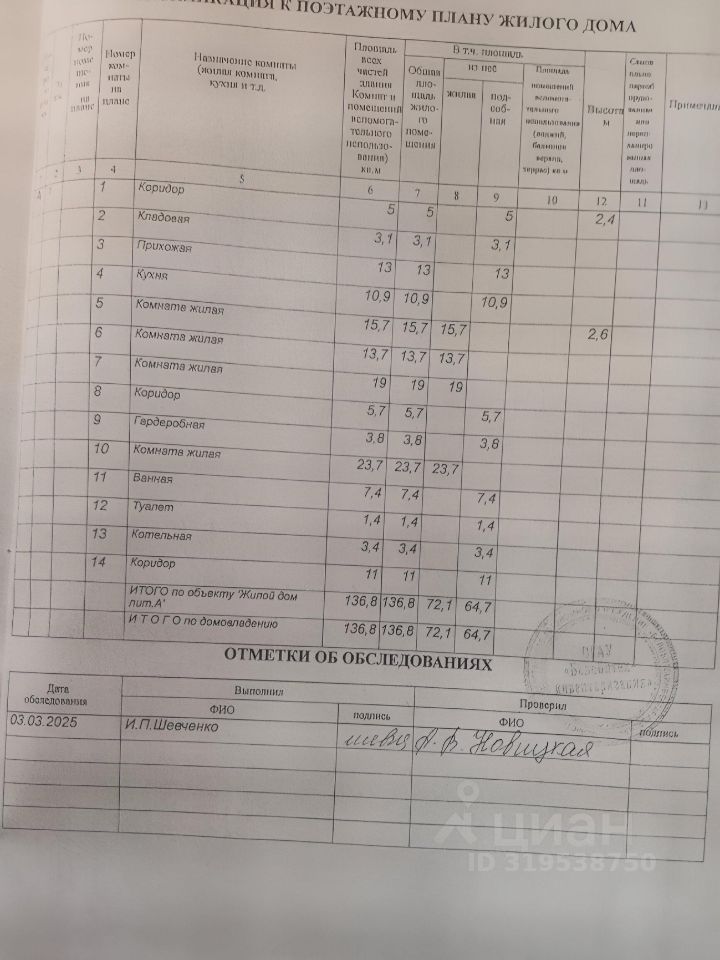 КАЦИЯ К ПОЭТАЖНОМУ ПЛАНУ ЖИЛОГО ДОМА
Номер комнаты на плане
Назначение комнаты (жилая комната, кухня и т.д.
Площадь всех частей здания Комнат и помещений вспомогательного использования) кв.м
В т.ч. площадь
Общая площадь жилого помещения
из нее
жилая
подсобная
Площадь помещений вспомогательного использования (лоджий, балконов веранд, террас) кв.м
Высота м
Примечани
2 3 4 5 6 7 8 9 10 12 11 13
1 Коридор 5 5 5 2,4
2 Кладовая 3,1 3,1 3,1
3 Прихожая 13 13 13
4 Кухня 10,9 10,9 10,9
5 Комната жилая 15,7 15,7 15,7 2,6
6 Комната жилая 13,7 13,7 13,7
7 Комната жилая 19 19 19
8 Коридор 5,7 5,7 5,7
9 Гардеробная 3,8 3,8 3,8
10 Комната жилая 23,7 23,7 23,7
11 Ванная 7,4 7,4 7,4
12 Туалет 1,4 1,4 1,4
13 Котельная 3,4 3,4 3,4
14 Коридор 11 11 11
ИТОГО по объекту 'Жилой дом лит.А' 136,8 136,8 72,1 64,7
И Т О Г О по домовладению 136,8 136,8 72,1 64,7
ОТМЕТКИ ОБ ОБСЛЕДОВАНИЯХ
Дата обследования
Выполнил
Проверил
ФИО
подпись
ФИО
подпись
03.03.2025 И.П.Шевченко А.В. Новицкая
циан
ID 319538750